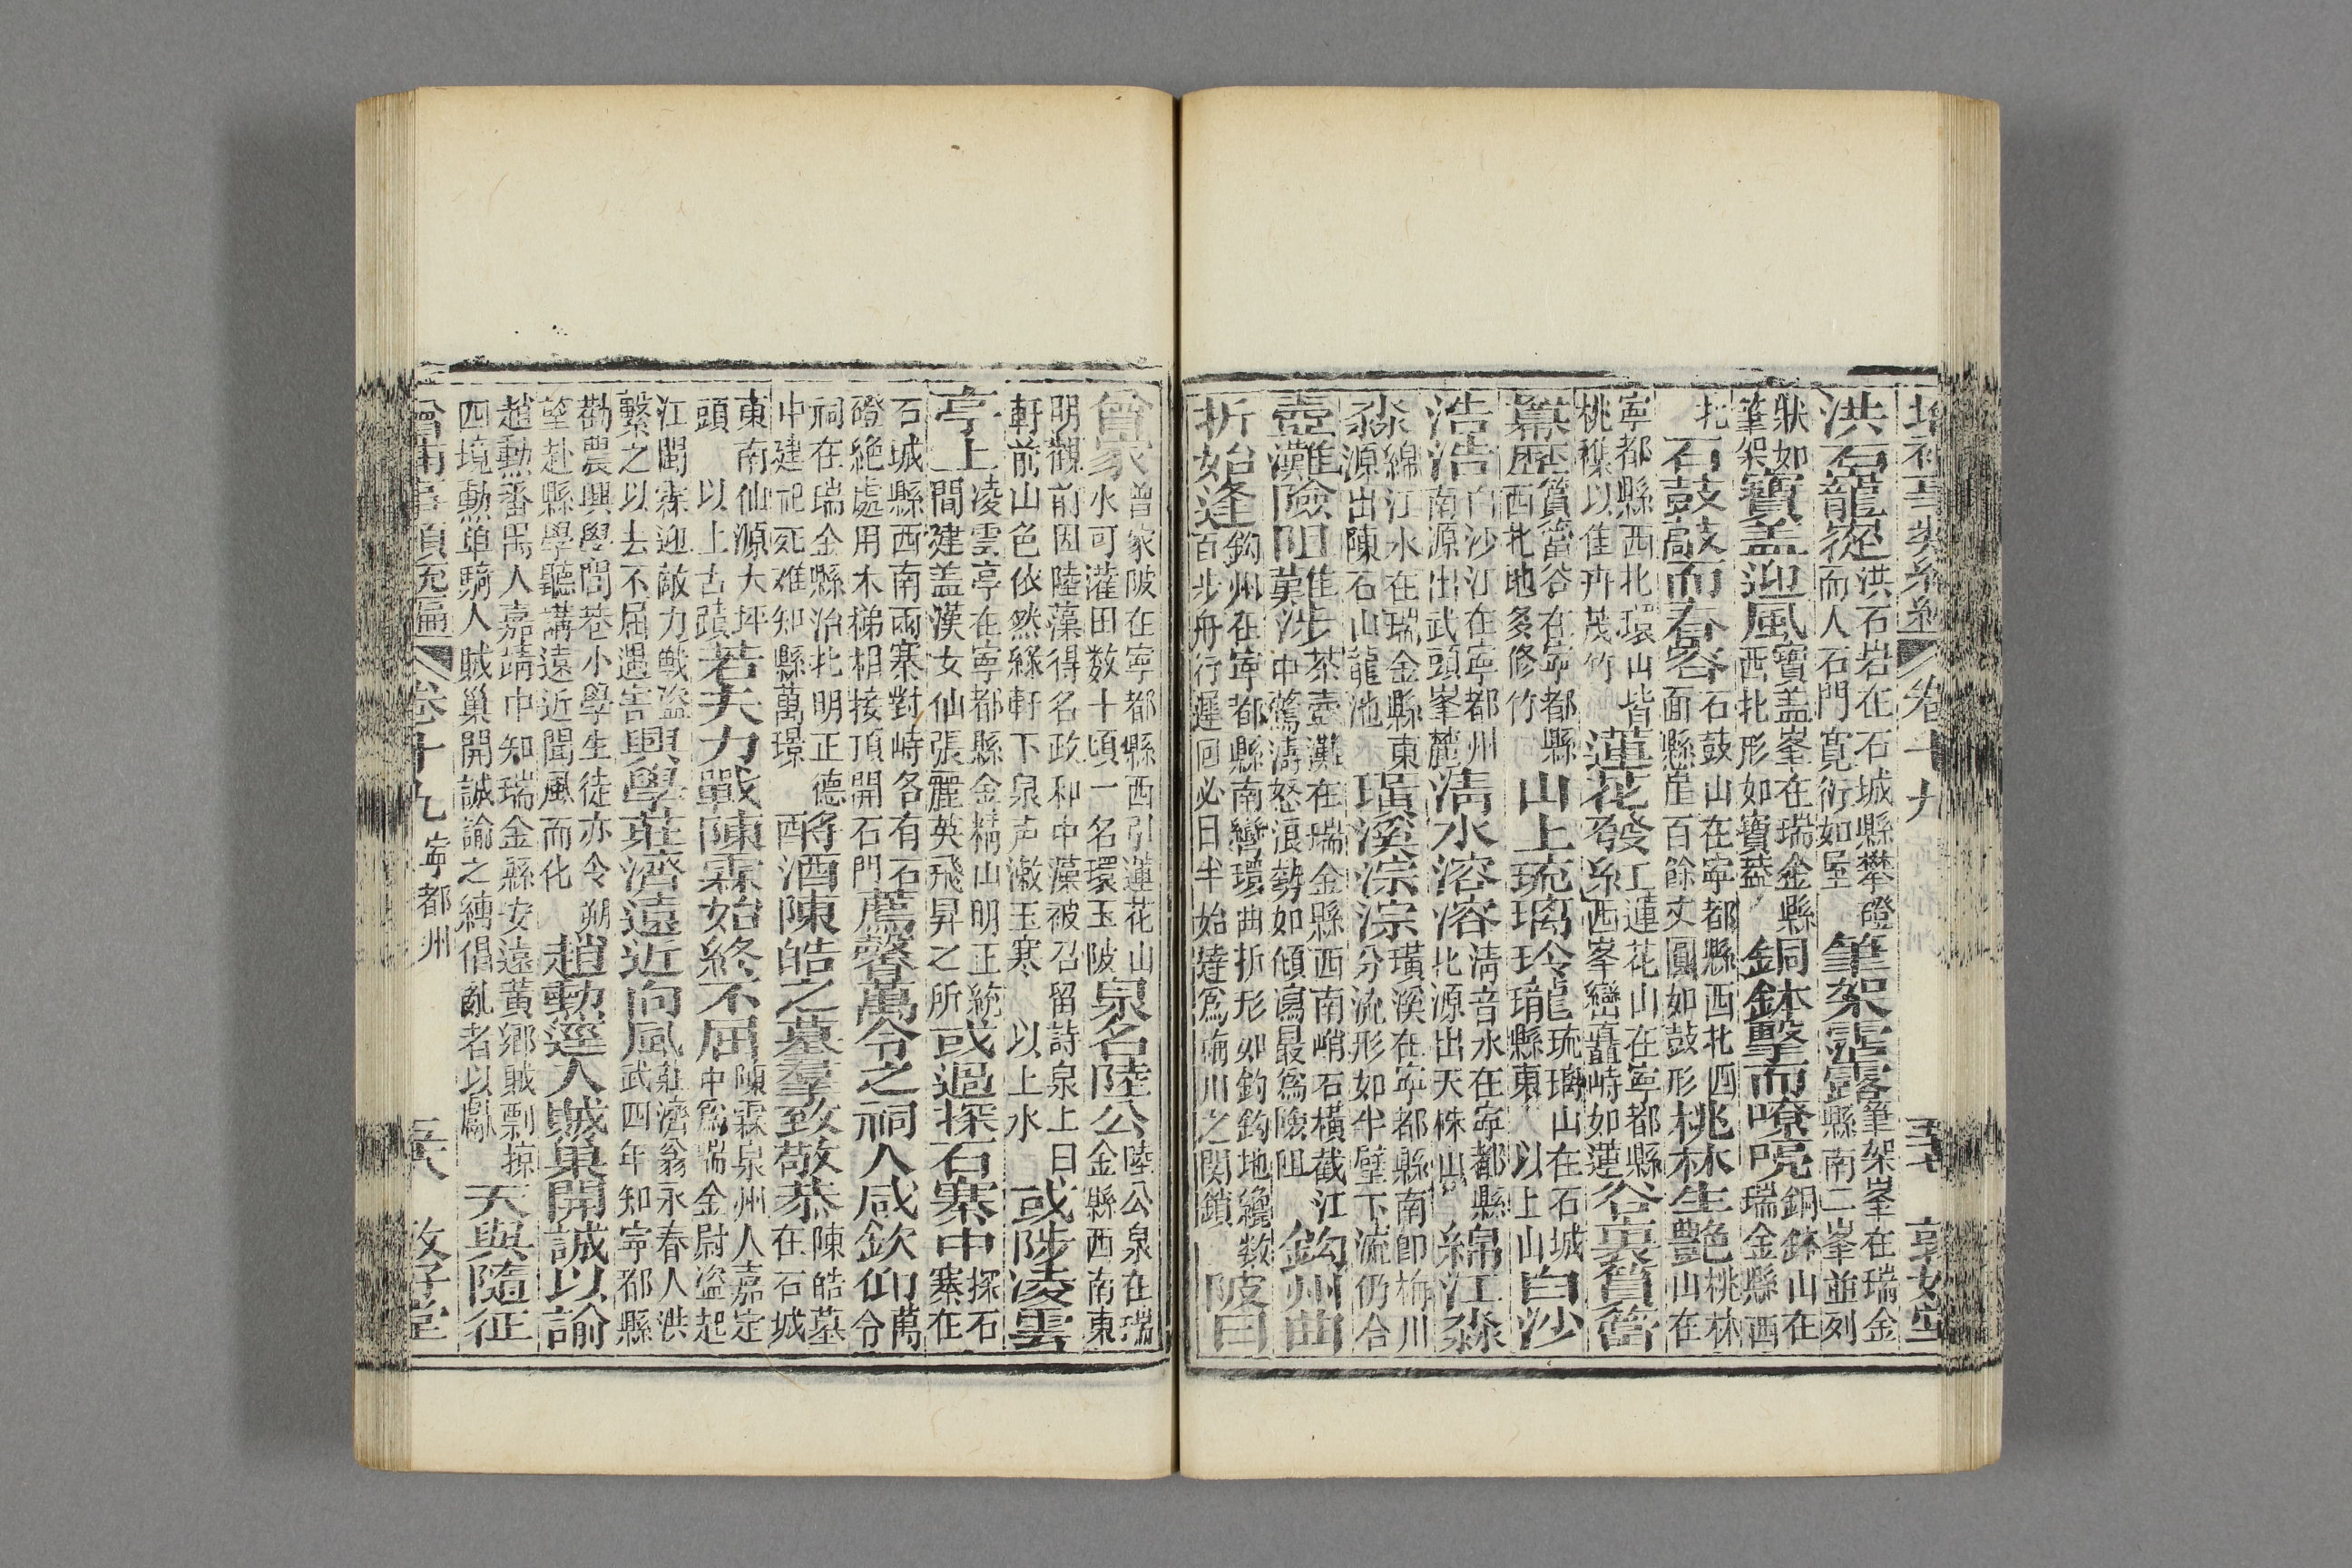 洪石巃嵸洪石岩在石城縣攀磴而人石門寬衍如屋筆架霑露筆架峯在瑞金縣南二峯並列
狀如筆架寶盖迎風寶盖峯在瑞金縣西北形如寶蓋銅鉢擊而嘹亮銅鉢山在瑞金縣西
北石鼓敲而舂容石鼓山在寧都縣西北四面懸崖百餘丈圓如鼓形桃林生艷桃林山在
寧都縣西北環山皆桃襍以佳卉茂竹蓮花發紅蓮花山在寧都縣西峯巒矗峙如蓮谷裏篔簹
冪歷篔簹谷在寧都縣西北地多修竹山上琉璃玲瓏琉璃山在石城縣東 以上山白沙
浩浩白沙江在寧都州南源出武頭峯麓淸水溶溶淸音水在寧都縣北源出天株山綿江淼
淼綿江水在瑞金縣東源出陳石山龍池璜溪淙淙璜溪在寧都縣南卽梅川分流形如半璧下流仍合
壺灘險阻隹步茶壺灘在瑞金縣西南峭石橫截江中驚濤怒浪勢如傾瀉最爲險阻鈎州曲
折始逢鈎州在寧都縣南灣環曲折形如鈎鈎地纔數百步舟行遲回必日半始達爲梅川之関鎖陂曰
曾家曾家陂在寧都縣西引蓮花山水可灌田数十頃一名環玉陂泉名陸公陸公泉在瑞金縣西南東
明觀前因陸藻得名政和中藻被召留詩泉上曰軒前山色依然綠軒下泉声漱玉寒 以上水或陟凌雲
亭上凌雲亭在寧都縣金精山明正統間建盖漢女仙張麗英飛昇之所或過探石寨中探石寨在
石城縣西南兩寨對峙各有石磴絶處用木梯相接頂開石門薦馨萬令之祠人咸欽仰萬令
祠在瑞金縣治北明正德中建祀死难知縣萬琛酹酒陳皓之墓羣致敬恭陳皓墓在石城
東南仙源大坪頭 以上古蹟若夫力戰陳霖始終不屈陳霖泉州人嘉定中爲瑞金尉盗起
江閩霖迎敵力戰盗繫之以去不屈遇害興學莊濟遠近向風莊濟翁永春人洪武四年知寧都縣
勸農興學閭巷小學生徒亦令朔望赴縣學聽講遠近聞風而化趙勳逕入賊巢開誠以諭
趙勳番禺人嘉靖中知瑞金縣安遠黃鄉賊剽掠四境勳单騎人賊巢開誠諭之縛倡亂者以獻天與隨征
卷十九 寧都州